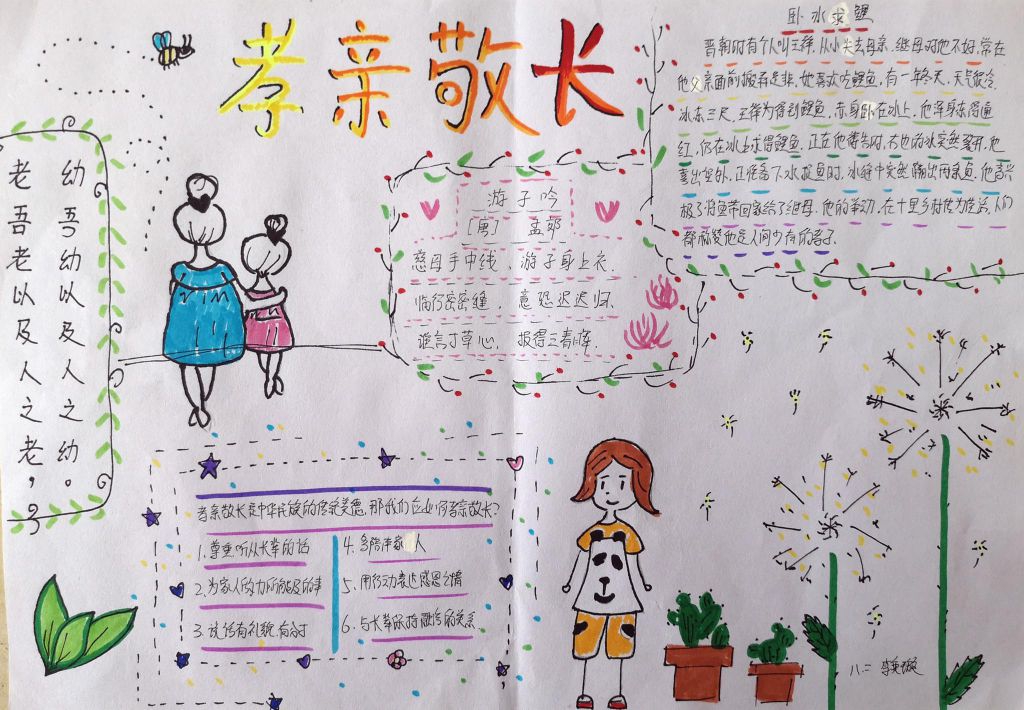 孝亲敬长
老吾老以及人之老，
幼吾幼以及人之幼。
游子吟
[唐] 孟郊
慈母手中线、游子身上衣.
临行密密缝， 意恐迟迟归.
谁言寸草心， 报得三春晖.
卧冰求鲤
晋朝时有个人叫王祥,从小失去母亲.继母对他不好,常在
他父亲面前搬弄是非.她喜欢吃鲤鱼,有一年冬天,天气很冷.
冰冻三尺,王祥为得到鲤鱼,赤身卧在冰上,他浑身冻得通
红,仍在冰上求得鲤鱼.正在他祷告时,右边的冰突然裂开.他
喜出望外,正准备下水捉鱼时,冰缝中突然蹦出两条鱼,他高兴
极了将鱼带回家给了继母.他的举动,在十里乡村传为佳话,人们
都称赞他是人间少有的孝子.
孝亲敬长是中华民族的传统美德,那我们应如何孝亲敬长?
1.尊重听从长辈的话
2.为家人做力所能及的事
3.说话有礼貌,有分寸
4.多陪伴家人
5.用行动表达感恩之情
6.与长辈保持融洽的关系
八.二 李